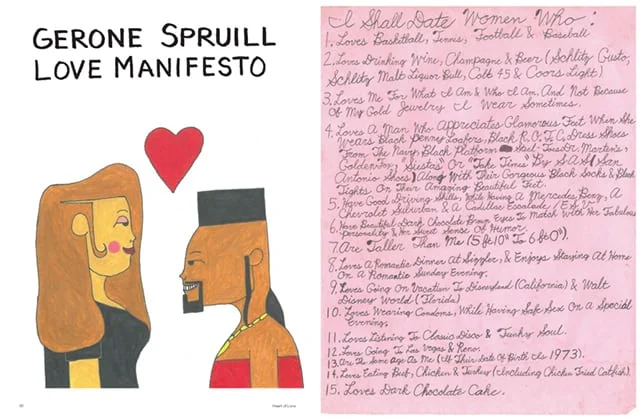 GERONE SPRUILL
LOVE MANIFESTO
Heart of Love
I Shall Date Women Who:
1. Loves Basketball, Tennis, Football & Baseball
2. Loves Drinking Wine, Champagne & Beer (Schlitz Gusto,
Schlitz Malt Liquor Bull, Colt 45 & Coors Light)
3. Loves Me For What I Am & Who I Am. And Not Because
Of My Gold Jewelry I Wear Sometimes.
4. Loves A Man Who Appreciates Glamorous Feet When She
Wears Black Penny Loafers, Black R.O.T.C. Dress Shoes
From The Navy, Black Platform Steel-Toes Dr. Martens,
"Siestas" Or "Take Times" By S A S (San
Antonio Shoes) Along With Their Gorgeous Black Socks & Black
Tights On Their Amazing Beautiful Feet.
5. Have Good Driving Skills, While Having A Mercedes Benz, A
Chevrolet Suburban & A Cadillac Escalade
6. Have Beautiful Dark Chocolate Brown Eyes To Match With Her Fabulous
Personality & Her Sweet Sense Of Humor.
7. Are Taller Than Me (5 ft 10" To 6 ft 0").
8. Loves A Romantic Dinner At Sizzler, & Enjoys Staying At Home
On A Romantic Sunday Evening.
9. Loves Going On Vacation To Disneyland (California) & Walt
Disney World (Florida)
10. Loves Wearing Condoms, While Having Safe Sex On A Special
Evening.
11. Loves Listening To Classic Disco & Funky Soul.
12. Loves Going To Las Vegas & Reno.
13. Are The Same Age As Me (If Their Date Of Birth Is 1973).
14. Loves Eating Beef, Chicken & Turkey (Including Chicken Fried Catfish).
15. Loves Dark Chocolate Cake.